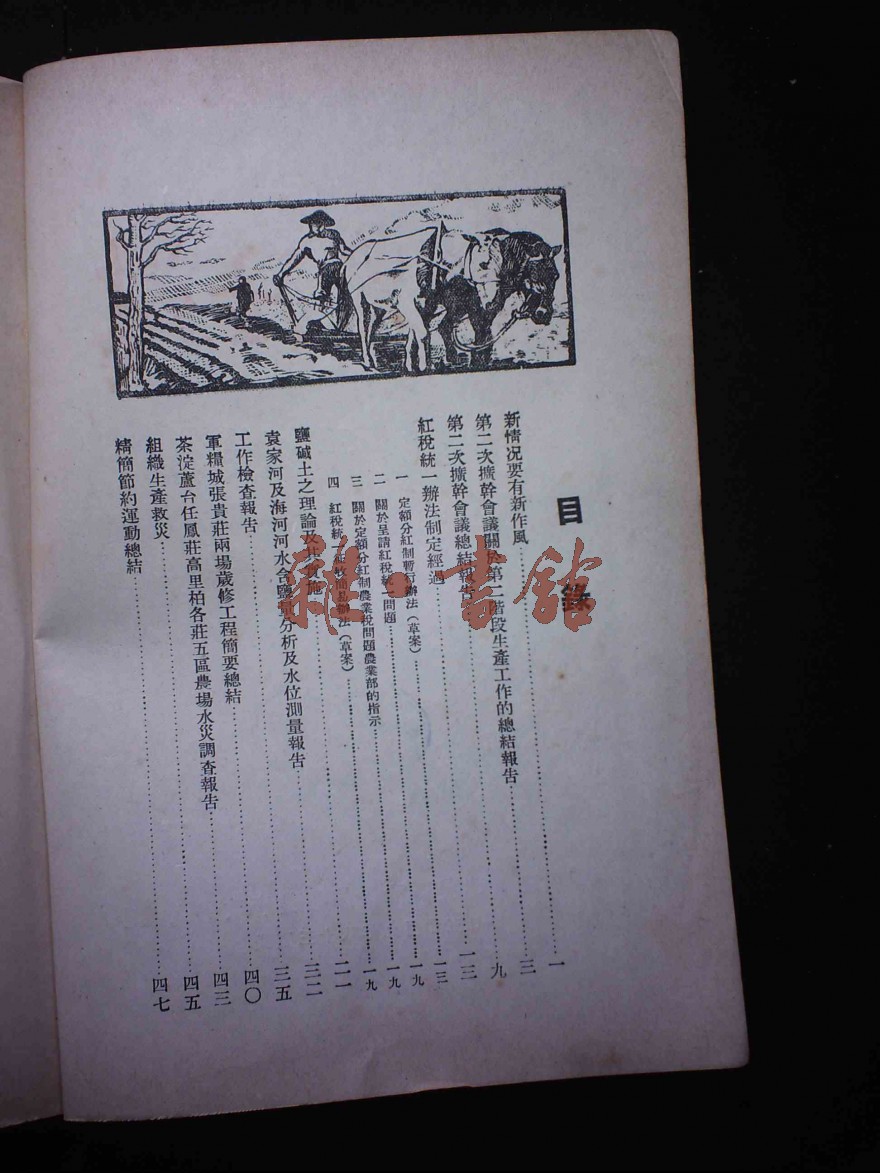 目錄
新情況要有新作風……一
第二次擴幹會議關於第二階段生產工作的總結報告……三
第二次擴幹會議總結報告……九
紅稅統一辦法制定經過……一三
一 定額分紅制暫行辦法(草案)……一三
二 關於呈請紅稅統一問題……一九
三 關於定額分紅制農業稅問題農業部的指示……一九
四 紅稅統 辦法(草案)……一九
鹽碱土之理論及其實施……二一
袁家河及海河河水含鹽量分析及水位測量報告……三二
工作檢查報告……三五
軍糧城張貴莊兩場歲修工程簡要總結……四〇
茶淀蘆台任鳳莊高里柏各莊五區農場水災調查報告……四三
組織生產救災……四五
精簡節約運動總結……四七
雜·書館